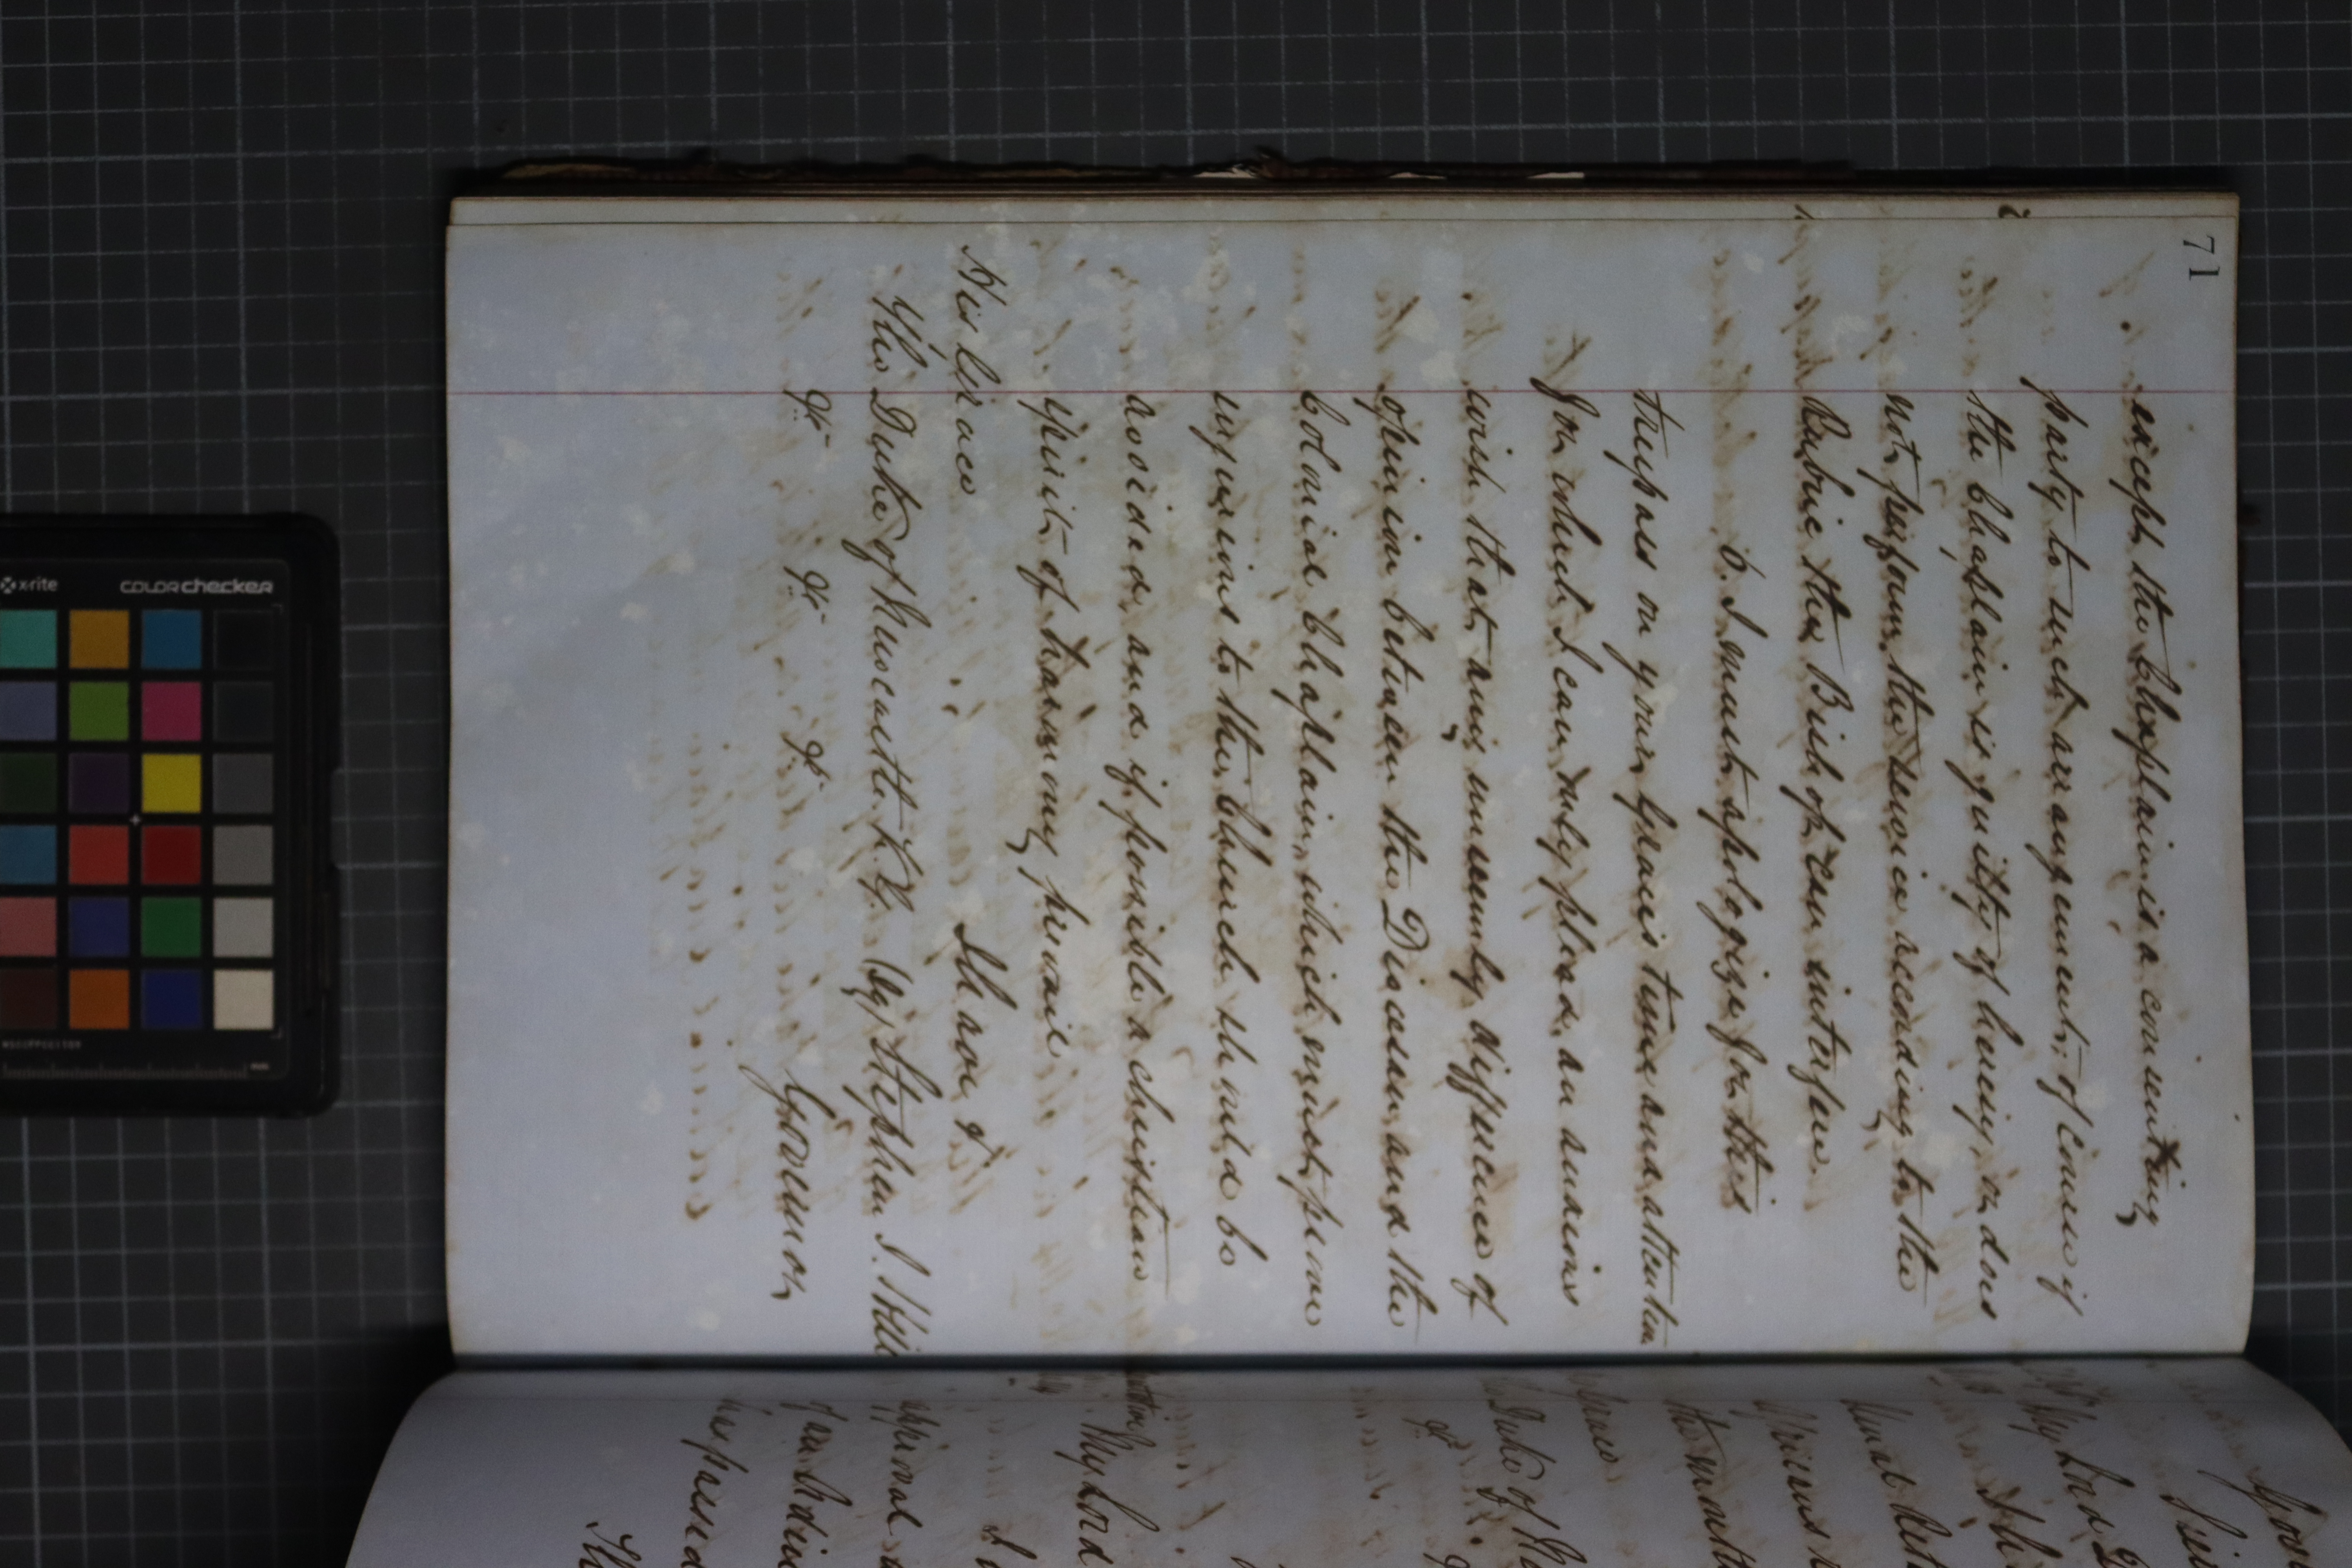 71
except the Chaplain is a consenting
party to such arrangement; of Course if
the Chaplain is guilty of heresy, or does
not perform the service according to the
Rubric the Bishop can interfere.
6. I must apologize for this
trespass on your Grace's time and attention
for which I can only plead an anxious
wish that any unseemly difference of
opinion between the Diocesan and the
Colonial Chaplain, which must prove
injurious to the Church should be
avoided, and if possible a christian
spirit of harmony prevail
I have &c
His Grace
The Duke of Newcastle K.G. (Sg) Stephen J. Hill
&c &c &c Governor
My Lord
Duke of
My Lord
approval
has passed
x-rite
colorchecker